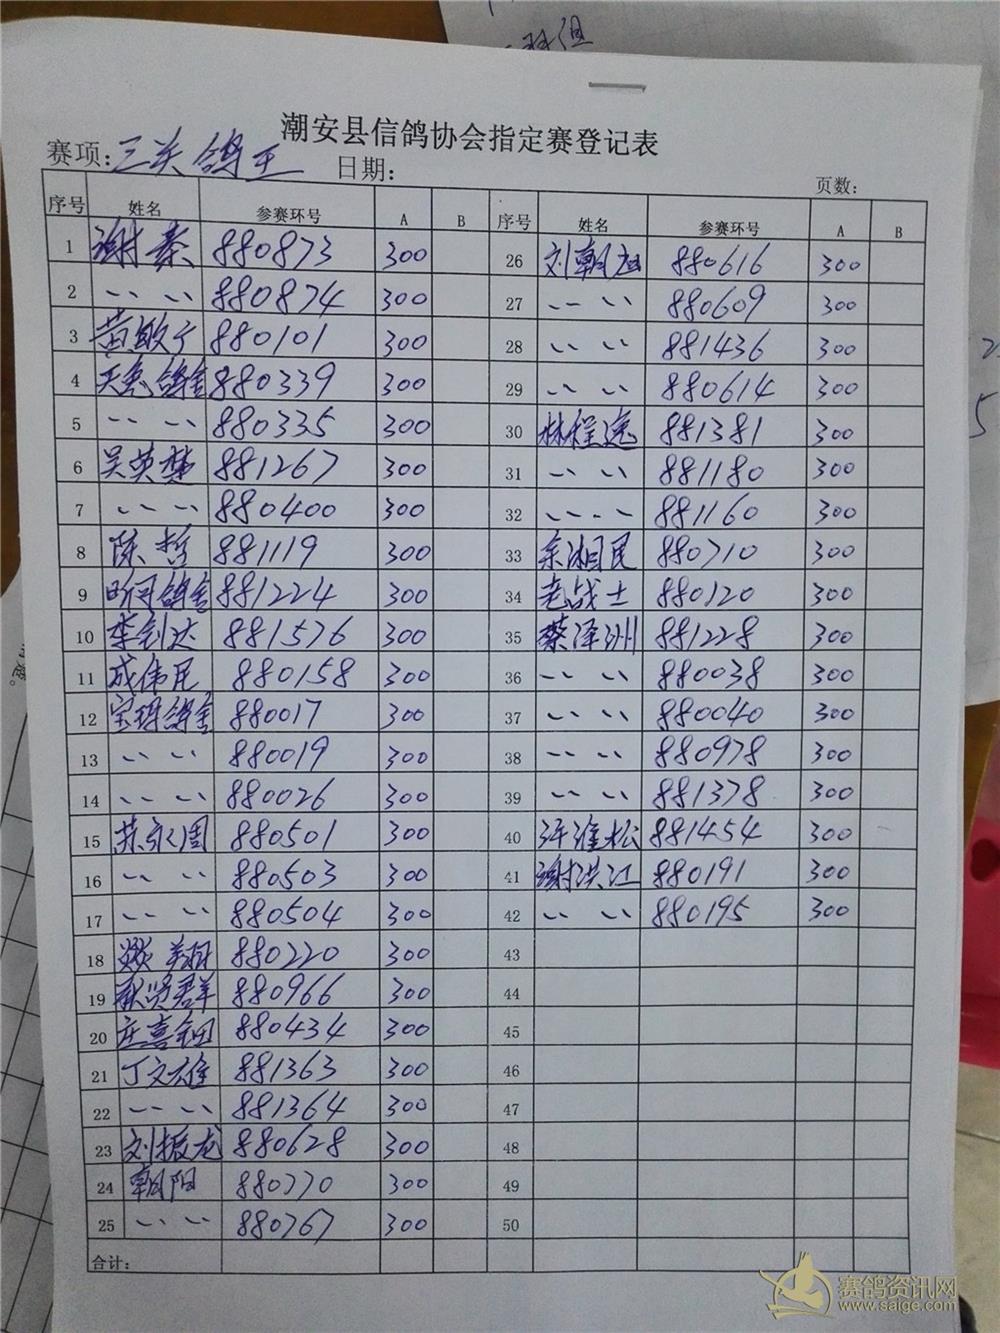 潮安县信鸽协会指定赛登记表
赛项:三关鸽王 日期: 页数:
序号 姓名 参赛环号 A B 序号 姓名 参赛环号 A B
1 谢秦 880873 300 26 刘朝 880616 300
2 〃 〃 880874 300 27 〃 〃 880609 300
3 黄敏 880101 300 28 〃 〃 881436 300
4 天 鸽舍 880339 300 29 〃 〃 880614 300
5 〃 〃 880335 300 30 林程逸 881381 300
6 吴英楚 881267 300 31 〃 〃 881180 300
7 〃 〃 880400 300 32 〃 〃 881160 300
8 陈哲 881119 300 33 余湘民 880710 300
9 鸽舍 881224 300 34 老战士 880120 300
10 李钊达 881576 300 35 蔡泽洲 881228 300
11 成伟民 880158 300 36 〃 〃 880038 300
12 宝 鸽舍 880017 300 37 〃 〃 880040 300
13 〃 〃 880019 300 38 〃 〃 880978 300
14 〃 〃 880026 300 39 〃 〃 881378 300
15 苏永周 880501 300 40 松 881454 300
16 〃 〃 880503 300 41 谢洪江 880191 300
17 〃 〃 880504 300 42 〃 〃 880195 300
18 翔 880220 300 43
19 贤群 880966 300 44
20 庄喜钿 880434 300 45
21 丁文雄 881363 300 46
22 〃 〃 881364 300 47
23 刘振龙 880628 300 48
24 朝阳 880770 300 49
25 〃 〃 880767 300 50
合计:
赛鸽资讯网
www.saige.com